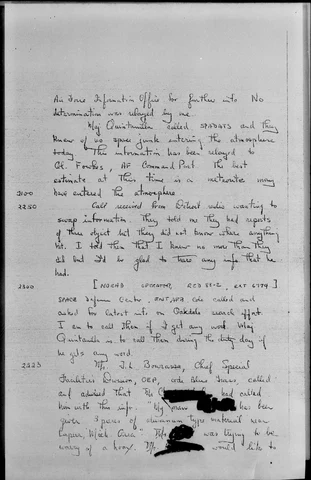 Air Force Information Office for further info No
determination was relayed by me.
Maj Quintanilla called SPADATS and they
knew of no space junk entering the atmosphere
today. This information has been relayed to
Col. Fowkes, AF Command Post. The best
estimate at this time is a meteorite may
have entered the atmosphere
2250 Call received from Detroit radio wanting to
swap information. They told me they had reports
of these object but they did not know where anything
hit. I told them that I knew no more than they
did but I'd be glad to have any info that he
had.
2300 [NORAD
SPACE Defense Center, ENT AFB Colo called and
asked for latest info on search effort.
I am to call them if I get any word. Maj
Quintanilla is to call them during the duty day if
he gets any word.
2323 Chief Special
Facilities Division, OEP, called
and advised that had called
him with this info. "My has been
given 3 pieces of aluminum type material near
was trying to be
wary of a hoax. would like to